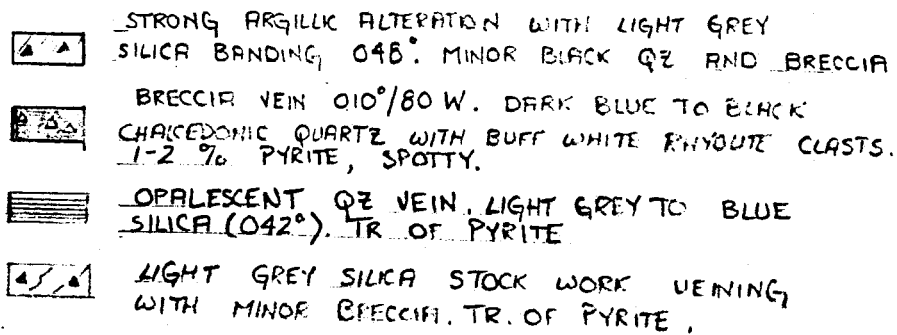 STRONG ARGILLIC ALTERATION WITH LIGHT GREY
SILICA BANDING, 048°. MINOR BLACK QZ AND BRECCIA
BRECCIA VEIN 010°/80 W. DARK BLUE TO BLACK
CHALCEDONIC QUARTZ WITH BUFF WHITE RHYOLITE CLASTS.
1-2 % PYRITE, SPOTTY.
OPALESCENT QZ VEIN. LIGHT GREY TO BLUE
SILICA (042°). TR OF PYRITE
LIGHT GREY SILICA STOCK WORK VEINING
WITH MINOR BRECCIA. TR. OF PYRITE.